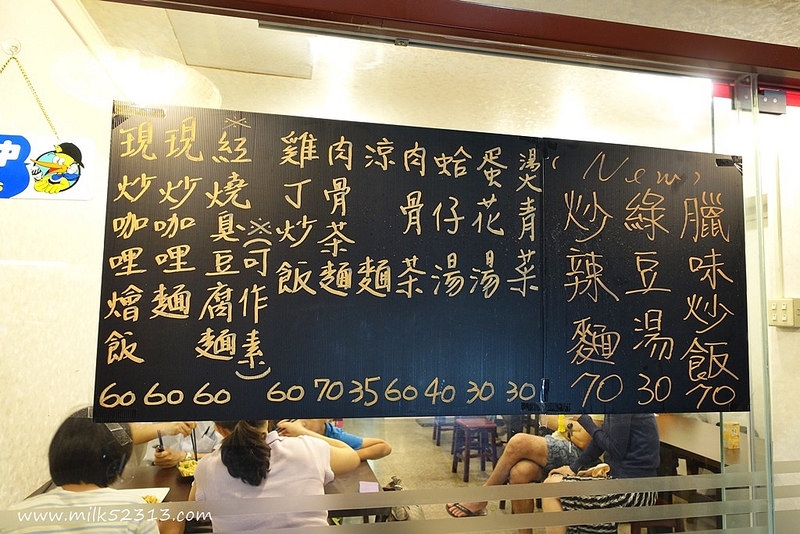 現炒咖哩燴飯 60
現炒咖哩麵 60
※紅燒臭豆腐麵 60
※(可作素)
雞丁炒飯 60
肉骨茶麵 70
涼麵 35
肉骨茶 60
蛤仔湯 40
蛋花湯 30
燙青菜 30
New
炒辣麵 70
綠豆湯 30
臘味炒飯 70
中
www.milk52313.com